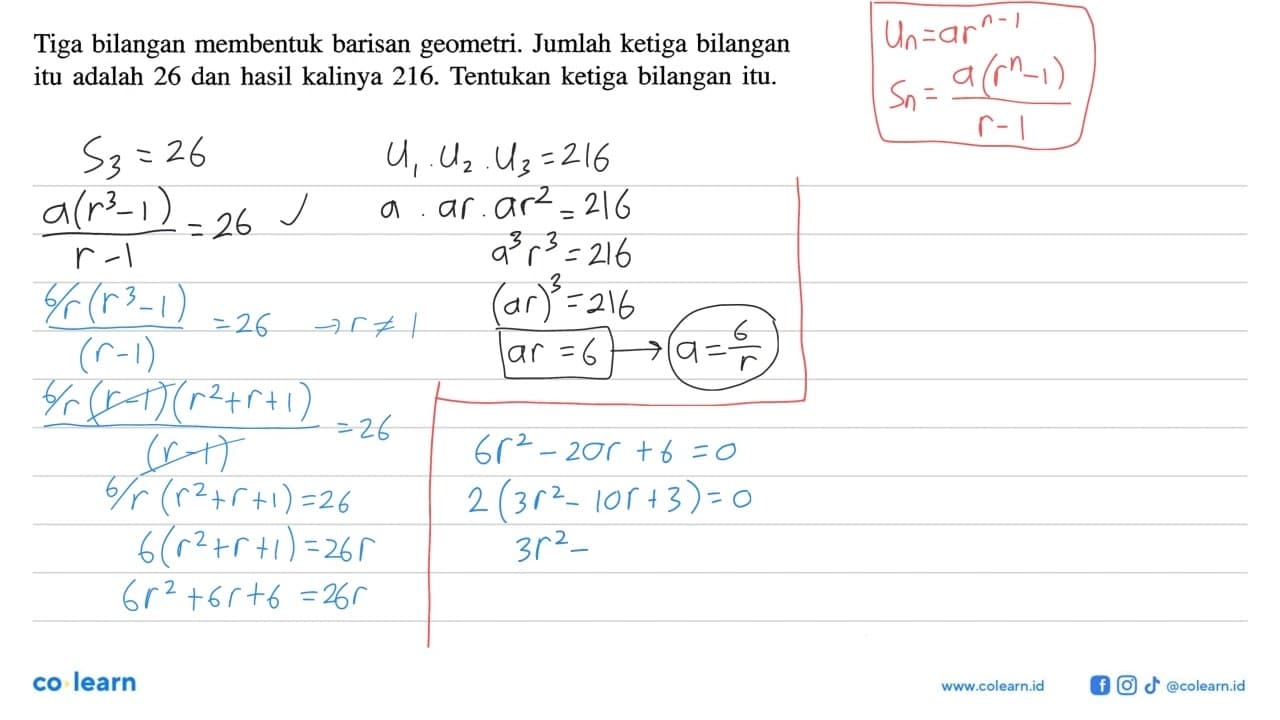 Tiga bilangan membentuk barisan geometri. Jumlah ketiga bilangan
itu adalah 26 dan hasil kalinya 216. Tentukan ketiga bilangan itu.
Uₙ = arⁿ⁻¹
Sₙ = a(rⁿ-1) / r-1
S₃ = 26
a(r³-1) / r-1 = 26 ✓
6/r (r³-1) / (r-1) = 26 → r ≠ 1
6/r (r-1)(r²+r+1) / (r-1) = 26
6/r (r²+r+1) = 26
6(r²+r+1) = 26r
6r²+6r+6 = 26r
U₁ . U₂ . U₃ = 216
a . ar . ar² = 216
a³r³ = 216
(ar)³ = 216
ar = 6 → a = 6/r
6r² - 20r + 6 = 0
2(3r² - 10r + 3) = 0
3r² -
co learn
www.colearn.id
@colearn.id